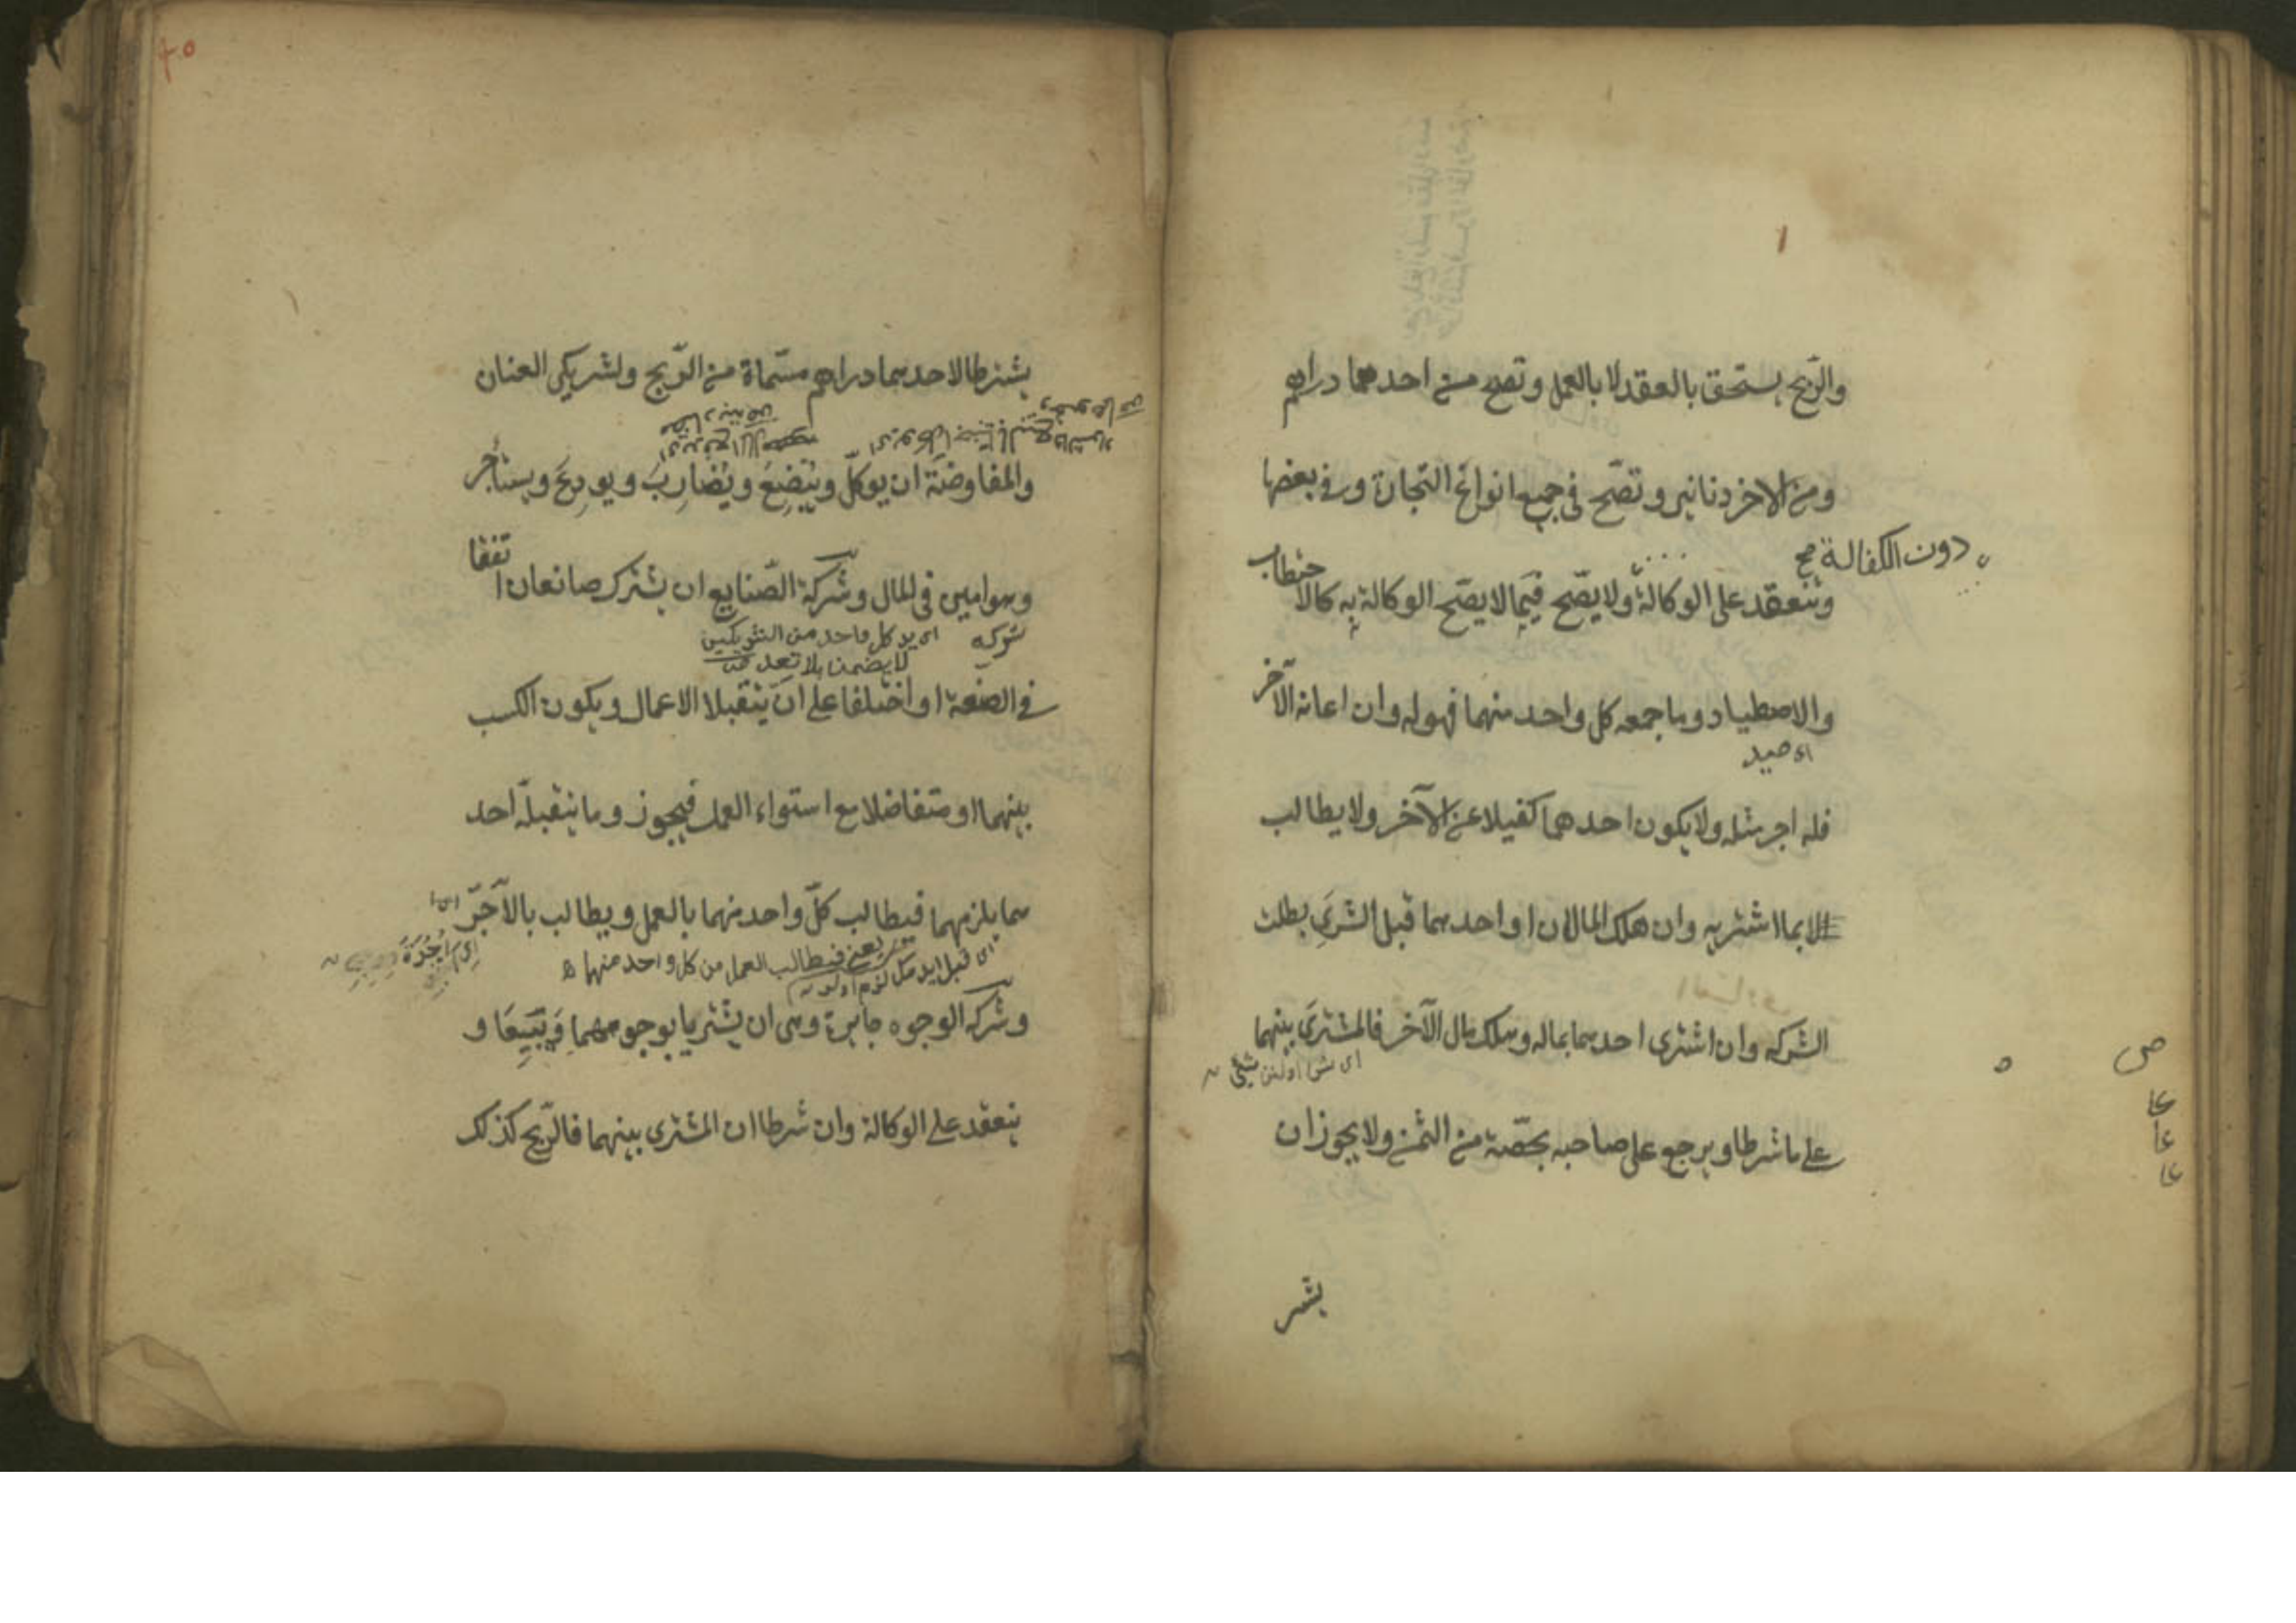 والرّبح يستحق بالعقد لا بالعمل وتصح من احدهما دراهم
ومن الاخر دنانير وتصّح فى جميع انواع التجارة وفى بعضها
دون الكفالة صح
وتنعقد على الوكالة ولا يصّح فيما لا يصّح الوكالة به كالاحتطاب
والاصطياد وما جمعه كل واحد منهما فهو له وان اعانه الآخر
اى صيد
فله اجر مثله ولا يكون احدهما كفيلا عن الآخر ولا يطالب
الا بما اشتريه وان هلك المالان او احدهما قبل الشرى بطلت
الشركه وان اشترى احدهما بماله وهلك مال الآخر فالمشترى بينهما
على ما شرطا ويرجع على صاحبه بحصّته من الثمن ولا يجوز ان
يشتر
يشترطا لاحدهما دراهم مسّماة من الرّبح ولشريكى العنان
والمفاوضة ان يوكّل ويبضع ويضارب ويودع ويستأجر
وهو امين فى المال وشركة الصّنايع ان يشترك صانعان اتفقا
اى يد كل واحد من الشريكين
لا يضمن بلا تعد
فى الصنعة او اختلفا على ان يتقبلا الاعمال ويكون الكسب
بينهما او متفاضلا مع استواء العمل فيجوز وما يتقبله احد
هما يلزمهما فيطالب كلّ واحد منهما بالعمل ويطالب بالآجرّ
يعنى فيطالب العمل من كل واحد منهما
وشركه الوجوه جايزة وهى ان يشتريا بوجوههما ويبيعا و
ينعقد على الوكالة وان شرطا ان المشترى بينهما فالرّبح كذلك